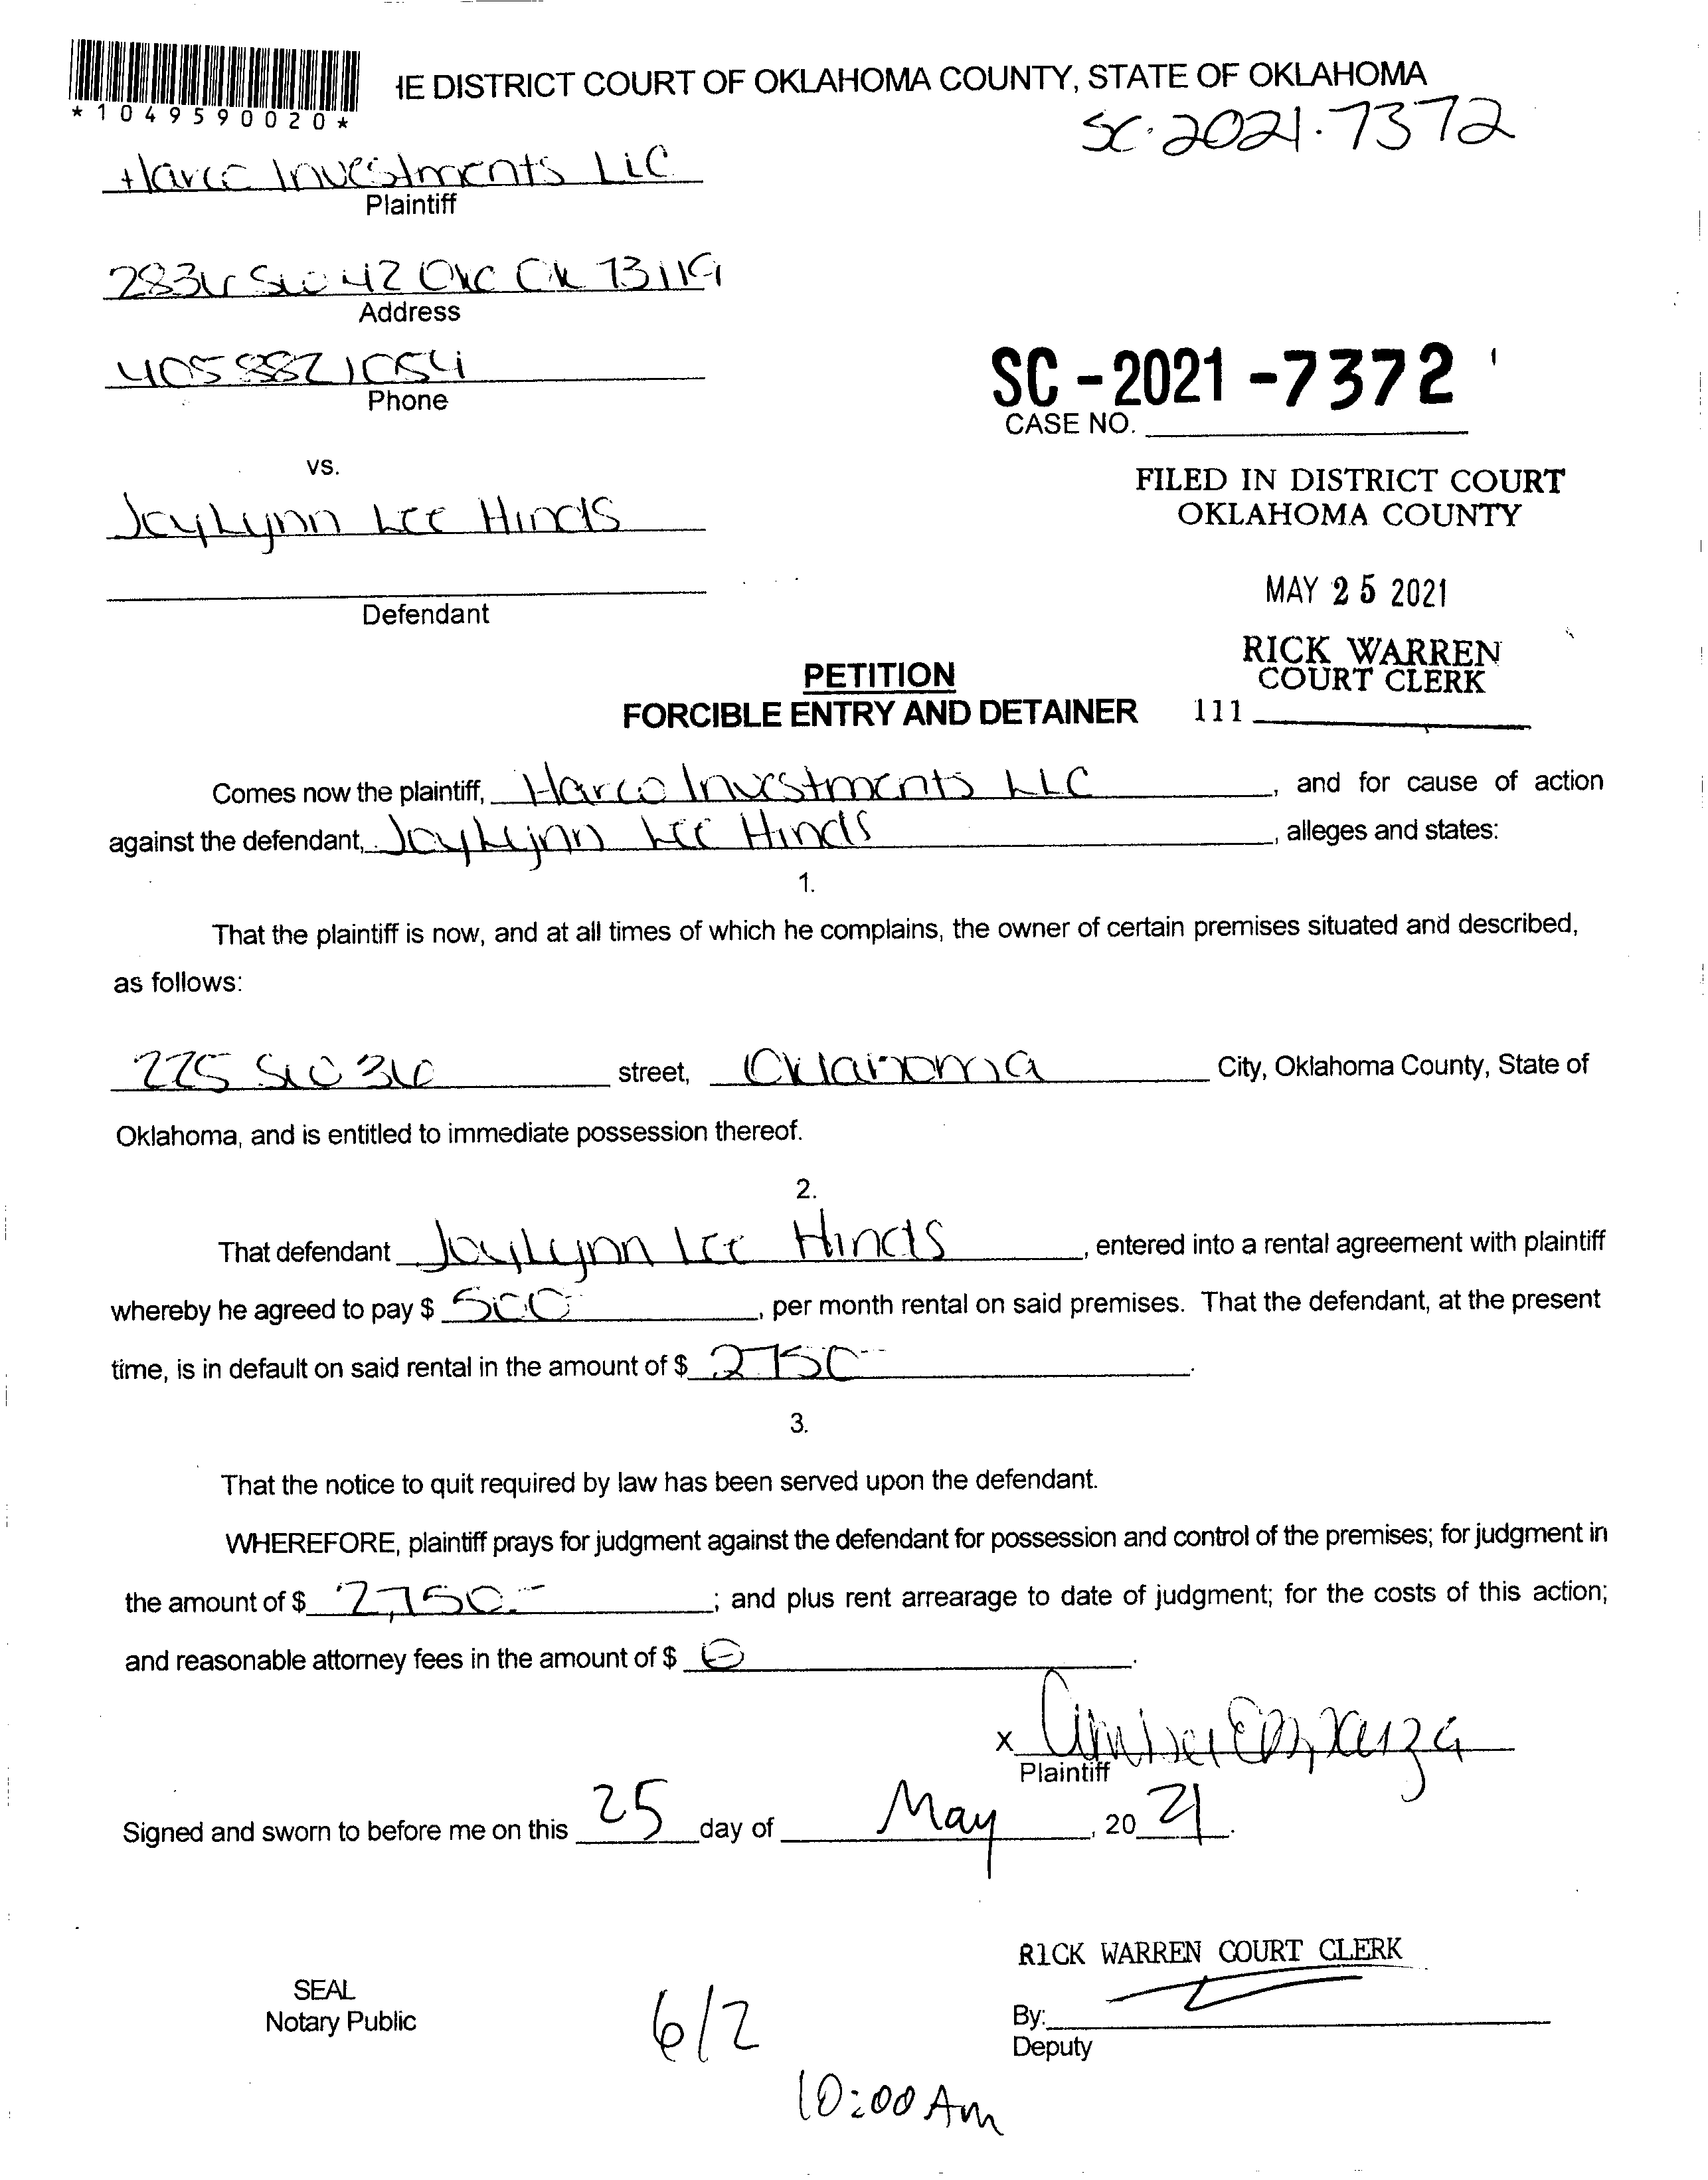 *1049590020*
IE DISTRICT COURT OF OKLAHOMA COUNTY, STATE OF OKLAHOMA
SC-2021-7372
Harco Investments LLC
Plaintiff
2836 SW 42 OKC OK 73119
Address
405 8821054
Phone
SC-2021-7372
CASE NO.
vs.
FILED IN DISTRICT COURT
OKLAHOMA COUNTY
JayLynn Lee Hinds
MAY 25 2021
Defendant
RICK WARREN
COURT CLERK
PETITION
FORCIBLE ENTRY AND DETAINER
111
Comes now the plaintiff, Harco Investments LLC, and for cause of action
against the defendant, JayLynn Lee Hinds, alleges and states:
1.
That the plaintiff is now, and at all times of which he complains, the owner of certain premises situated and described,
as follows:
225 SW 36 street, Oklahoma City, Oklahoma County, State of
Oklahoma, and is entitled to immediate possession thereof.
2.
That defendant JayLynn Lee Hinds, entered into a rental agreement with plaintiff
whereby he agreed to pay $ 500, per month rental on said premises. That the defendant, at the present
time, is in default on said rental in the amount of $ 2750-.
3.
That the notice to quit required by law has been served upon the defendant.
WHEREFORE, plaintiff prays for judgment against the defendant for possession and control of the premises; for judgment in
the amount of $ 2,750.-; and plus rent arrearage to date of judgment; for the costs of this action;
and reasonable attorney fees in the amount of $
x
Plaintiff
Signed and sworn to before me on this 25 day of May, 2021.
RICK WARREN COURT CLERK
SEAL
Notary Public
By:
Deputy
6/2
10:00 Am